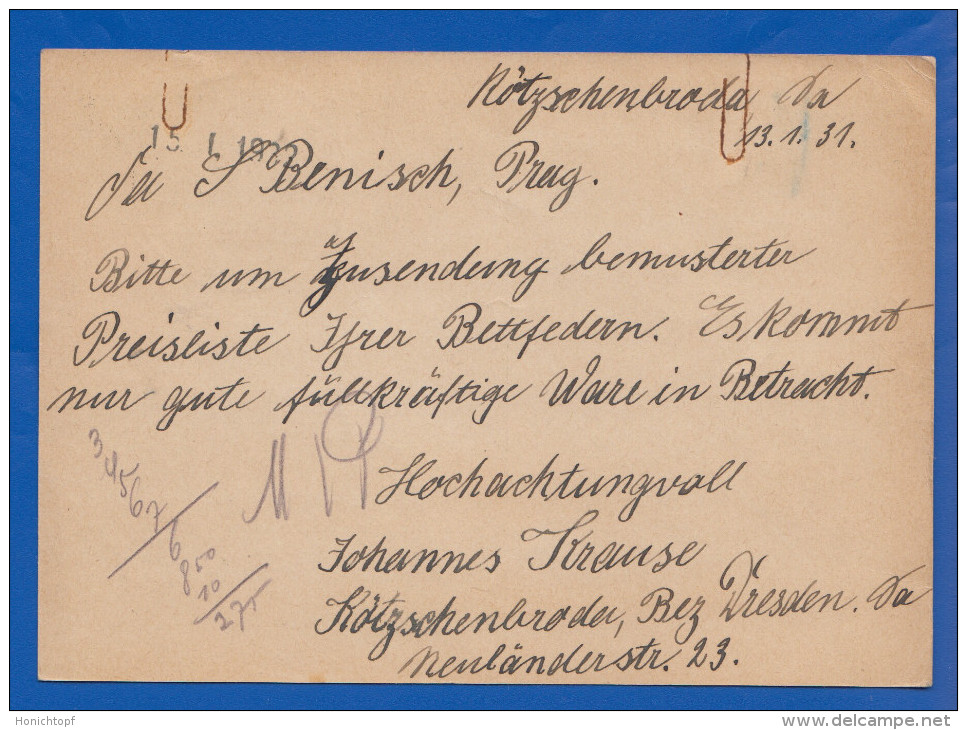 Kötzschenbroda Sa
13.1.31.
15. 1. 193
Fa S Benisch, Prag.
Bitte um Zusendung bemusterter
Preisliste Ihrer Bettfedern. Es kommt
nur gute füllkräftige Ware in Betracht.
Hochachtungvoll
Johannes Krause
Kötzschenbroda, Bez Dresden. Sa
Neuländerstr. 23.
3 4 5 6 7
6
8 50
10
Honichtopf
www.delcampe.net